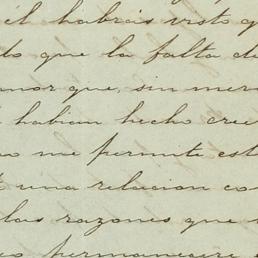 él habrás visto q
do que la falta de
mor que, sin mer
habian hecho cre
me permite est
una relacion co
las razones que
permanecere